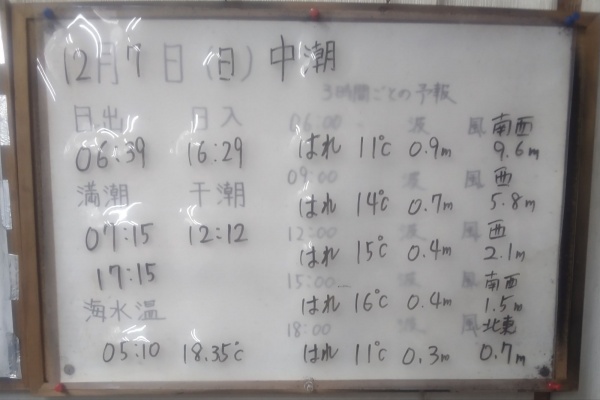 12月7日(日)中潮
日出 日入
06:39 16:29
満潮 干潮
07:15 12:12
17:15
海水温
05:10 18.35℃
3時間ごとの予報
06:00 波 風 南西
はれ 11℃ 0.9m 9.6m
09:00 波 風 西
はれ 14℃ 0.7m 5.8m
12:00 波 風 西
はれ 15℃ 0.4m 2.1m
15:00 波 風 南西
はれ 16℃ 0.4m 1.5m
18:00 波 風 北東
はれ 11℃ 0.3m 0.7m